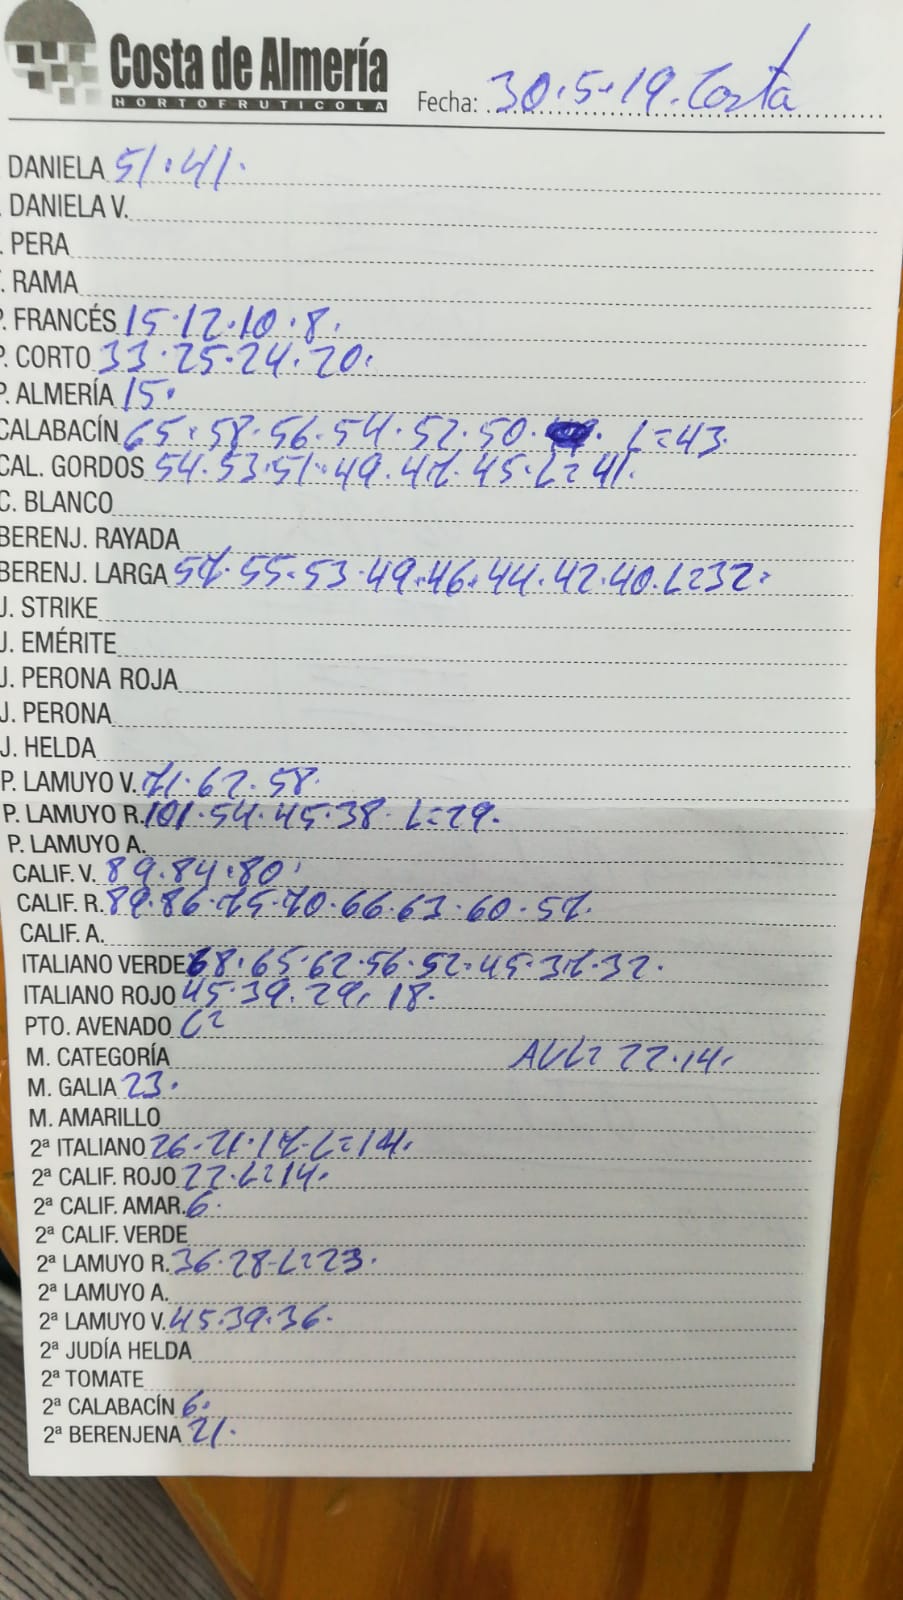 Costa de Almería
HORTOFRUTICOLA
Fecha: 30.5.19. Costa
DANIELA 51.41.
. DANIELA V.
. PERA
. RAMA
P. FRANCÉS 15.12.10.8.
P. CORTO 33.25.24.20.
P. ALMERÍA 15.
CALABACÍN 65.58.56.54.52.50. L=43.
CAL. GORDOS 54.53.51.49.47.45.L=41.
C. BLANCO
BERENJ. RAYADA
BERENJ. LARGA 57.55.53.49.46.44.42.40.L=32.
J. STRIKE
J. EMÉRITE
J. PERONA ROJA
J. PERONA
J. HELDA
P. LAMUYO V. 71.62.58.
P. LAMUYO R. 101.54.45.38. L=29.
P. LAMUYO A.
CALIF. V. 89.84.80.
CALIF. R. 89.86.75.70.66.63.60.57.
CALIF. A.
ITALIANO VERDE 68.65.62.56.52.45.37.32.
ITALIANO ROJO 45.39.29.18.
PTO. AVENADO L=
M. CATEGORÍA 22.14.
M. GALIA 23.
M. AMARILLO
2ª ITALIANO 26.21.17.L=14.
2ª CALIF. ROJO 22.L=14.
2ª CALIF. AMAR. 6.
2ª CALIF. VERDE
2ª LAMUYO R. 36.28.L=23.
2ª LAMUYO A.
2ª LAMUYO V. 45.39.36.
2ª JUDÍA HELDA
2ª TOMATE
2ª CALABACÍN 6.
2ª BERENJENA 21.